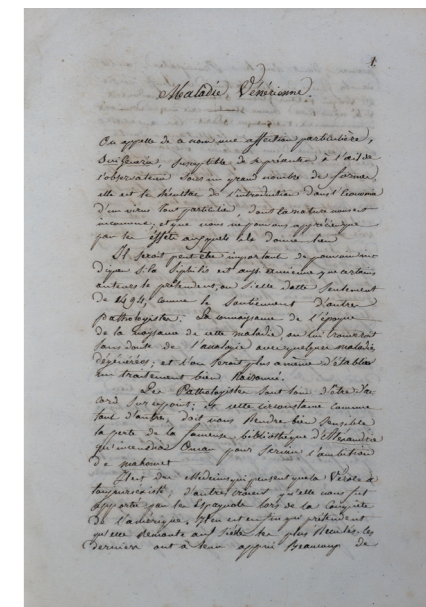 1.
Maladie Vénérienne.
On appelle de ce nom une affection particulière,
Sui Generis, susceptible de se présenter à l'œil de
l'observateur sous un grand nombre de formes
elle est le résultat de l'introduction dans l'économie
d'un virus tout particulier, dont la nature nous est
inconnue, et que nous ne pouvons apprécier que
par les effets auxquels elle donne lieu
Il serait peut être important de pouvoir
diquer si la Syphilis est aussi ancienne que certains
auteurs le prétendent, ou si elle datte seulement
de 1494, comme le soutiennent d'autres
Pathologistes; la connaissance de l'époque
de la naissance de cette maladie, on lui trouverait
sans doute de l'analogie avec quelques maladies
dégénérées, et l'on serait plus à même d'établir
un traitement bien raisonné.
Les Pathologistes sont loin d'être d'ac
cord sur ce point; et cette circonstance comme
tant d'autres, doit nous rendre bien sensible
la perte de la fameuse bibliothèque d'Alexandrie
qu'incendia Omar pour servir l'ambition
de mahomet
Il est des Médecins qui pensent que la Vérole a
toujours existé; d'autres croient qu'elle nous fut
apportée par les Espagnols lors de la Conquête
de l'amérique. Il en est enfin qui prétendent
qu'elle remonte aux siècles les plus reculés. les
derniers ont à leur appui beaucoup de